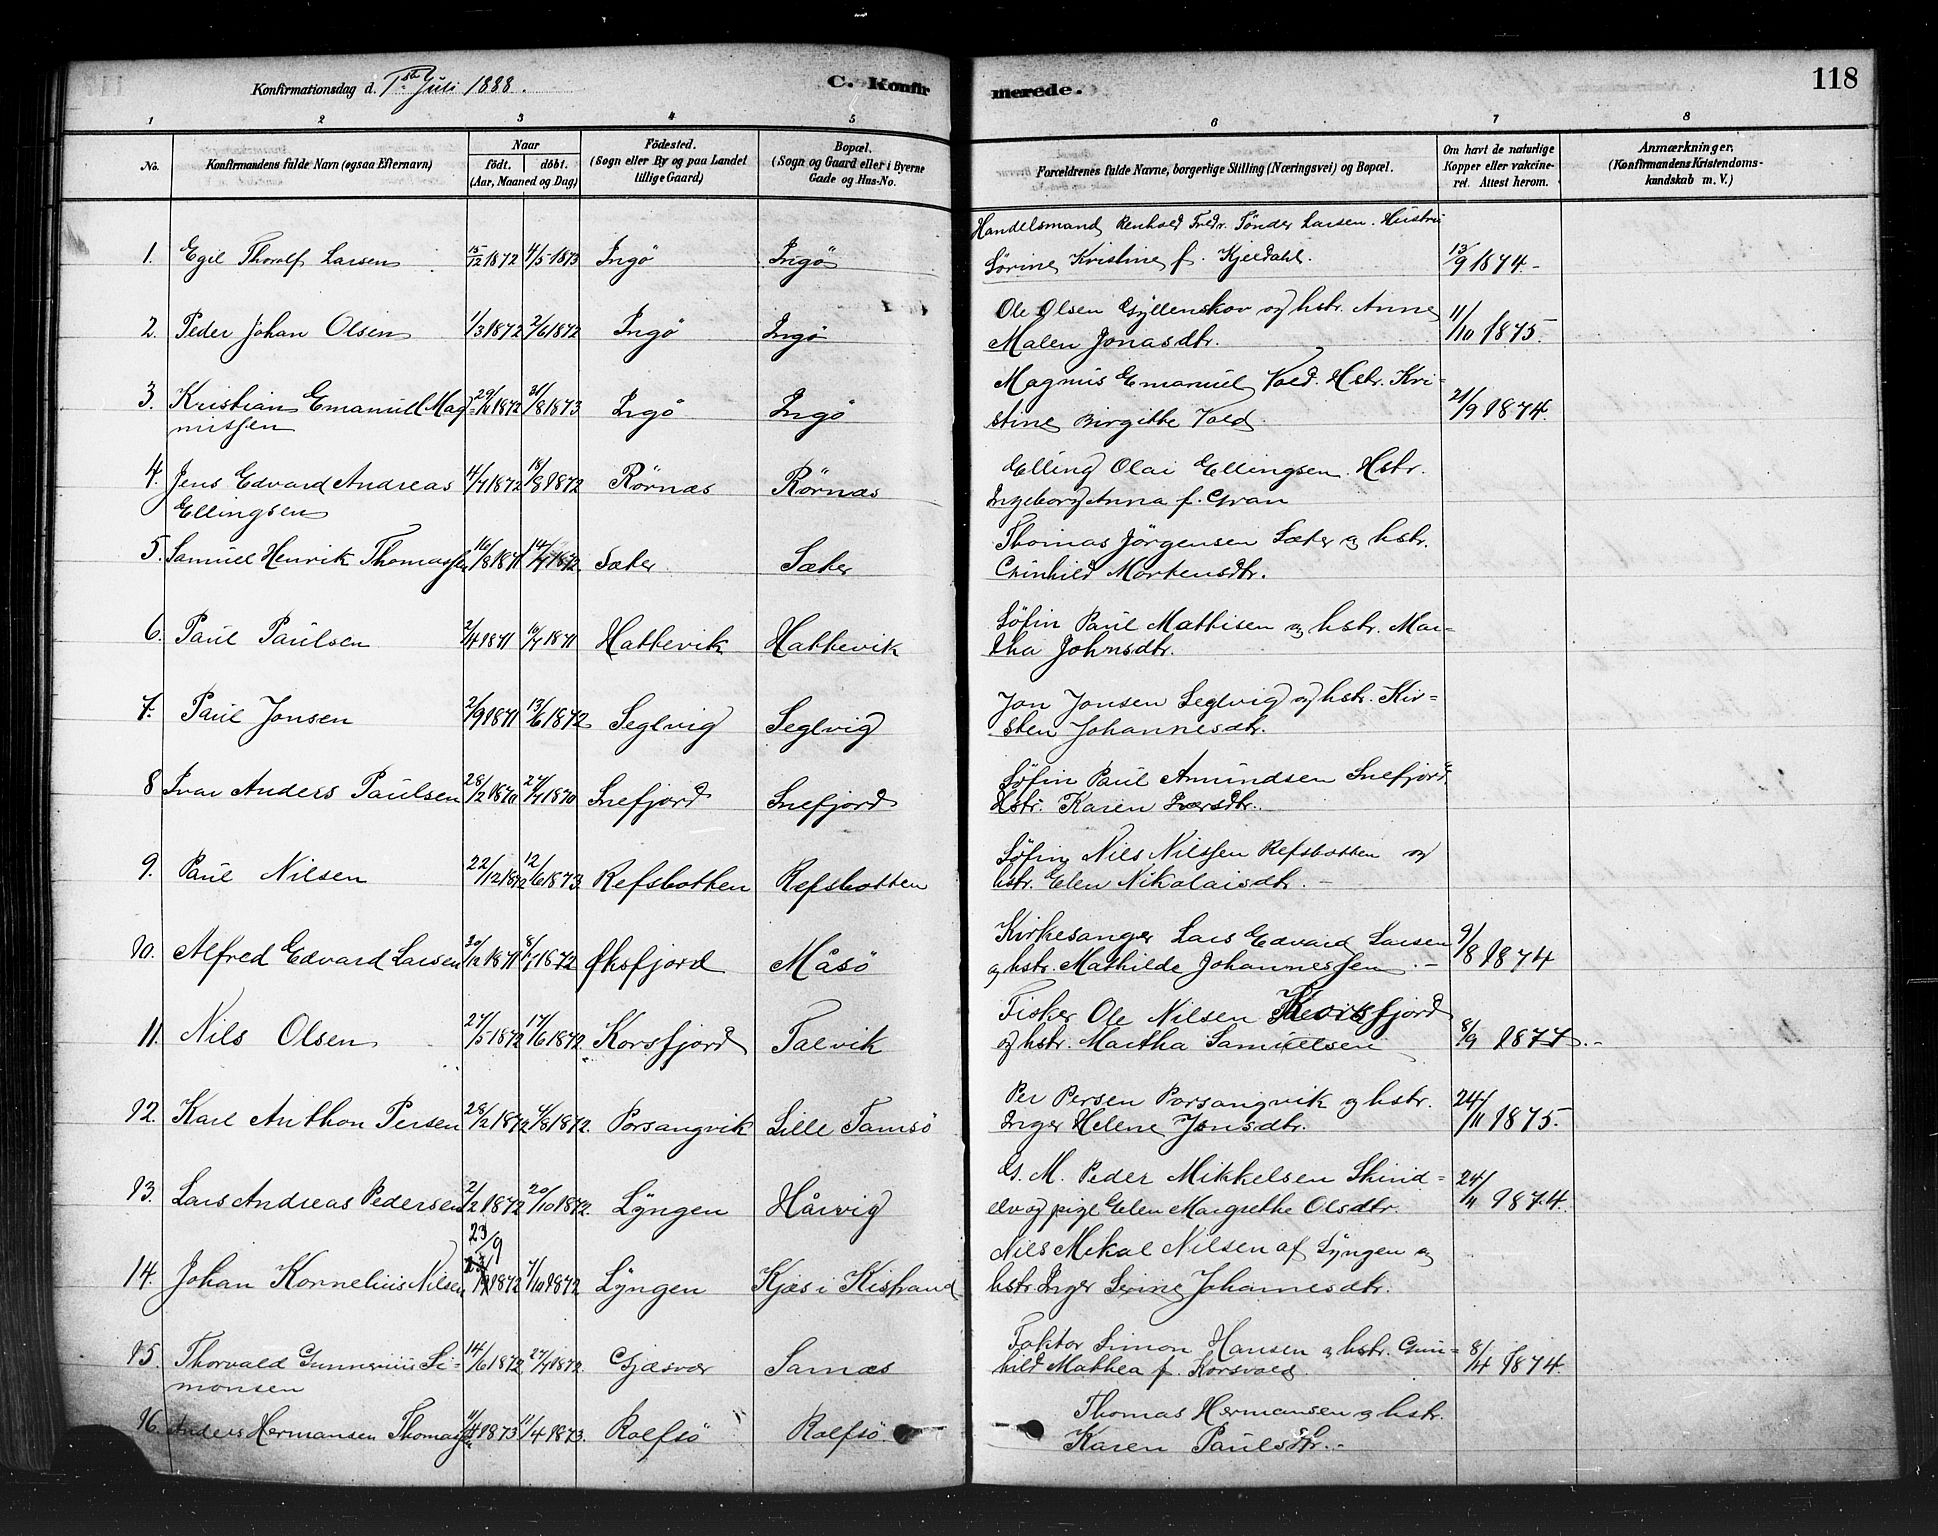 Konfirmationsdag d. 1ste Juli 1888.
C. Konfirmerede.
118
1 2 3 4 5 6 7 8
No. Konfirmandens fulde Navn (ogsaa Efternavn) Naar födt. döbt. (Aar, Maaned og Dag) Födested. (Sogn eller By og paa Landet tillige Gaard) Bopæl. (Sogn og Gaard eller i Byerne Gade og Hus-No. Forældrenes fulde Navne, borgerlige Stilling (Næringsvei) og Bopæl. Om havt de naturlige Kopper eller vakcineret. Attest herom. Anmærkninger. (Konfirmandens Kristendomskundskab m. V.)
Handelsmand Renhold Fredr. Tönder Larsen. Hustru
1. Egil Thoralf Larsen 15/12 1872 4/5 1873 Ingö Ingö Sörine Kristine f. Kjeldahl. 13/9 1874.
Ole Olsen Gyllenskov og hstr. Anne
2. Peder Johan Olsen 1/3 1872 2/6 1872 Ingö Ingö Malen Jonasdtr. 11/10 1875.
Magnus Emanuel Vold. Hstr. Kri-
3. Kristian Emanuel Mag- 1872 31/8 1873 Ingö Ingö stine Birgitte Vold. 21/9 1874.
nussen
Elling Olai Ellingsen. Hstr.
4. Jens Edvard Andreas 4/7 1872 18/8 1872 Rörnæs Rörnæs Ingeborg Anna f. Gran
Ellingsen
Thomas Jörgensen Sæter og hstr.
5. Samuel Henrik Thomassen 16/8 1871 14/7 1872 Sæter Sæter Gunhild Mortensdtr.
Söfin Paul Mathisen og hstr. Mar-
6. Paul Paulsen 2/4 1871 16/7 1871 Hattevik Hattevik tha Johnsdtr.
Jon Jonsen Seglvig og hstr. Kir-
7. Paul Jonsen 2/9 1871 13/6 1872 Seglvig Seglvig sten Johannesdtr.
Söfin Paul Amundsen Snefjord.
8 Ivar Anders Paulsen 28/2 1870 27/7 1870 Snefjord Snefjord Hstr. Karen Iversdtr.
Söfin Nils Nilssen Refsbotten og
9. Paul Nilsen 22/12 1872 12/6 1873 Refsbotten Refsbotten hstr. Elen Nikolaisdtr. -
Kirkesanger Lars Edvard Larsen
10. Alfred Edvard Larsen 30/12 1871 8/7 1872 Øksfjord Måsö og hstr. Mathilde Johannessen. - 9/8 1874
Fisker Ole Nilsen Korsfjord
11. Nils Olsen 27/5 1872 17/6 1872. Korsfjord Talvik og hstr. Martha Samuelsen 8/9 1877.-
Per Persen Porsangvik og hstr.
12. Karl Anthon Persen 28/2 1872 4/8 1872. Porsangvik Lille Tamsö Inger Helene Jonsdtr. 24/11 1875.
G. M. Peder Mikkelsen Skind-
13. Lars Andreas Pedersen 2/2 1872 20/10 1872. Lyngen Hårvig elv og pige Elen Margrethe Olsdtr. 24/11 1874.
23/9
Nils Mikal Nilsen af Lyngen og
14. Johan Kornelius Nilsen 1872 7/10 1872. Lyngen Kjæs i Kistrand hstr. Inger Serine Johannesdtr.
Faktor Simon Hansen og hstr. Gun-
15. Thorvald Gunnerius Si- 14/6 1872 27/7 1872. Gjæsvær Sarnæs hild Mathea f. Korsvold 8/4 1874.
monsen
Thomas Hermansen og hstr.
16. Anders Hermansen Thomassen 11/4 1873 11/4 1873. Rolfsö Rolfsö Karen Paulsdtr. -